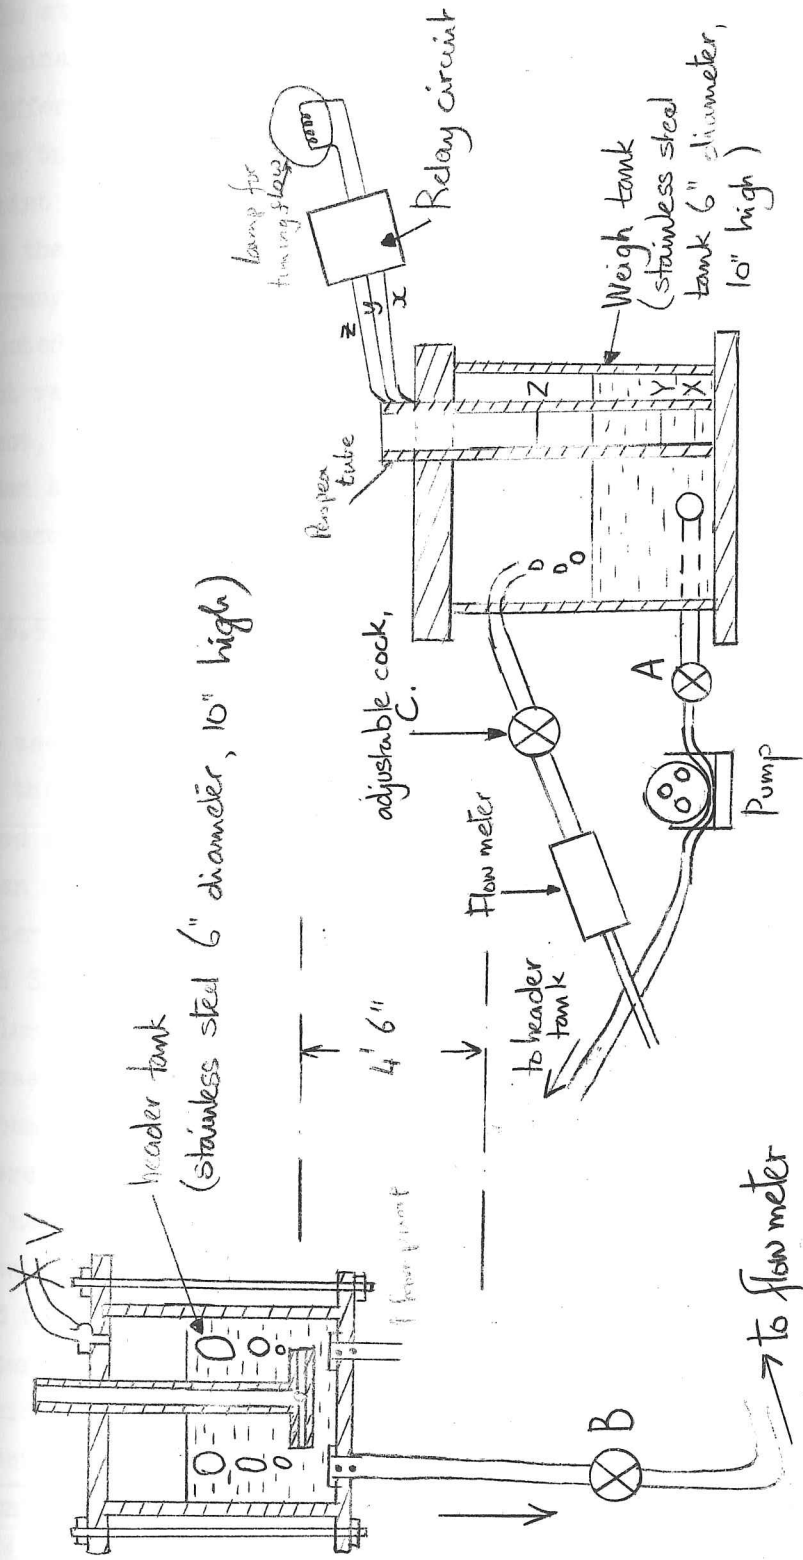 V
header tank
(stainless steel 6" diameter, 10" high)
4' 6"
from pump
B
to flow meter
to header
tank
Flow meter
adjustable cock,
C.
Pump
A
Perspex
tube
Lamp for
timing flow
Relay circuit
z
y
x
Z
Y
X
Weigh tank
(stainless steel
tank 6" diameter,
10" high)